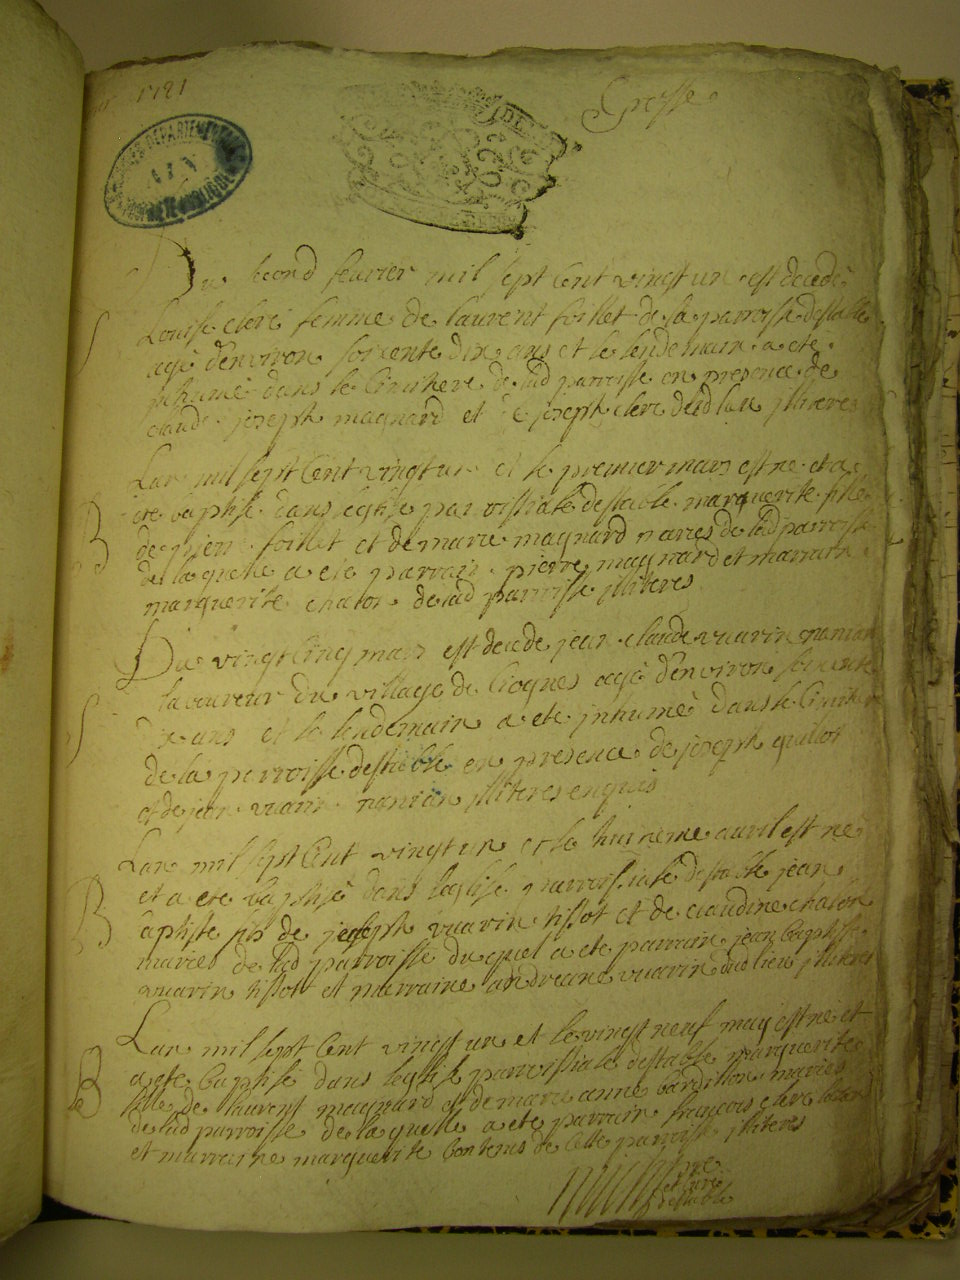 1721
Grosse
Du second fevrier mil sept cent vingt un est decedé
S
Louise clerc femme de laurent foillet de la parroisse destable
agé denviron soixente dix ans et le lendemain a eté
inhumé dans le cimitiere de lad parroisse en presence de
claude joseph magnard et de joseph clerc dud lieu illiteres
Lan mil sept cent vingt un et le premier mars est né et a
B
eté baptisé dans leglise parroissiale destable marguerite fille
de pierre foillet et de marie magnard maries de lad parroisse
de laquelle a eté parrain pierre magnard et marraine
marguerite chalon de lad parroisse illiteres
Du vingt cinq mars est decedé jean claude vuarin nanian
S
laboureur du village de crognes agé denviron soixente
dix ans et le lendemain a eté inhumé dans le cimitiere
de la parroisse destable en presence de joseph quillot
et de jean vuarin nanian illiteres enquis
Lan mil sept cent vingt un et le huitieme avril est né
B
et a eté baptisé dans leglise parroissiale destable jean
baptiste fils de joseph vuarin tissot et de claudine chalon
maries de lad parroisse duquel a eté parrain jean baptiste
vuarin tissot et marraine andreane vuarin dud lieu illiteres
Lan mil sept cent vingt un et le vingt neuf may est né et
B
a eté baptisé dans leglise parroissiale destable marguerite
fille de laurent magnard et de marie anne bardillon maries
de lad parroisse de laquelle a eté parrain françois clerc
et marraine marguerite bontems de cette parroisse illiteres
pre
et curé
destable